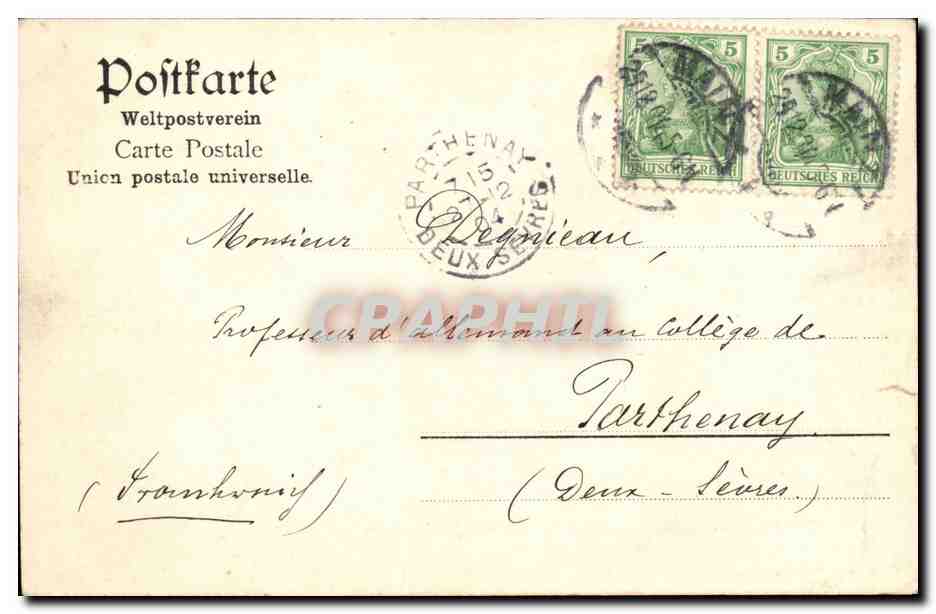 Postkarte
Weltpostverein
Carte Postale
Union postale universelle.
5 5
5 5
DEUTSCHES REICH
DEUTSCHES REICH
MAINZ
PARTHENAY
15
12
DEUX SÈVRES
Monsieur Degnieau,
CRAPHIL
Professeur d'allemand au collège de
Parthenay
(Deux-Sèvres.)
(Frankreich)